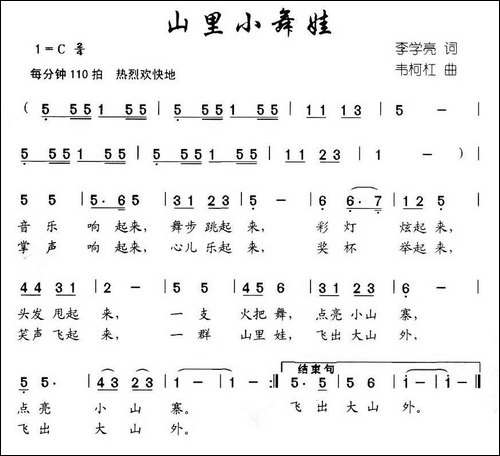 山里小舞娃
1=C
李学亮 词
每分钟110拍 热烈欢快地
韦柯杠 曲
( 5 5 5 5 5 1 5 5 | 5 5 5 5 5 1 5 5 | 1 1 1 3 | 5 - |
5 5 5 5 5 1 5 5 | 5 5 5 5 5 1 5 5 | 1 1 2 3 | 1 - ) |
5 5 | 5· 6 5 | 3 1 2 3 | 5 - | 6 6· 7 | 1 2 5 |
音 乐 响 起来, 舞步 跳起 来, 彩 灯 炫起来,
掌 声 响 起来, 心儿 乐起 来, 奖 杯 举起来,
4 4 3 1 | 2 - | 5 5 | 4 5 6 | 3 1 2 3 | 6 - |
头发 甩起 来, 一 支 火把 舞, 点亮 小山 寨,
笑声 飞起 来, 一 群 山里 娃, 飞出 大山 外,
结束句
5 5· | 4 3 2 3 | 1 - | 1 - :‖ 5· 5 | 5 6 | i - | i - ‖
点 亮 小 山 寨。 飞出 大 山 外。
飞 出 大 山 外。